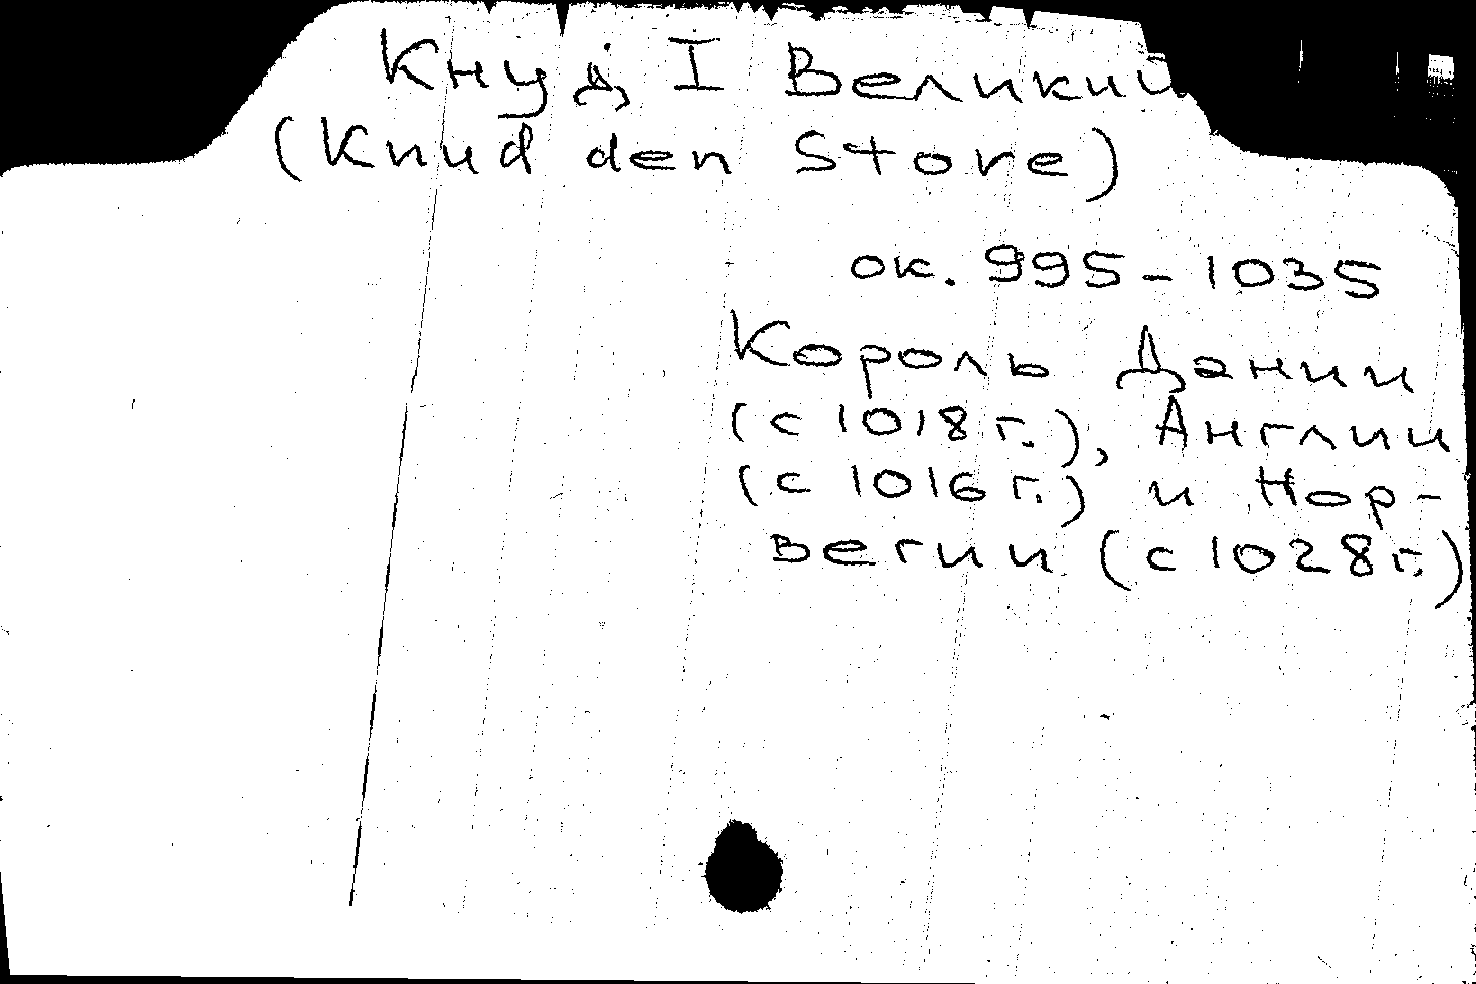 Кнуд I Великий
(Knud den Store)
ок. 995-1035
Король Дании
(с 1018 г.), Англии
(с 1016 г.) и Нор-
вегии (с 1028 г.)